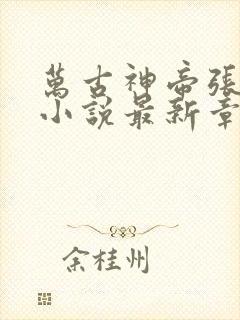 萬古神帝張
小說最新章
余桂州